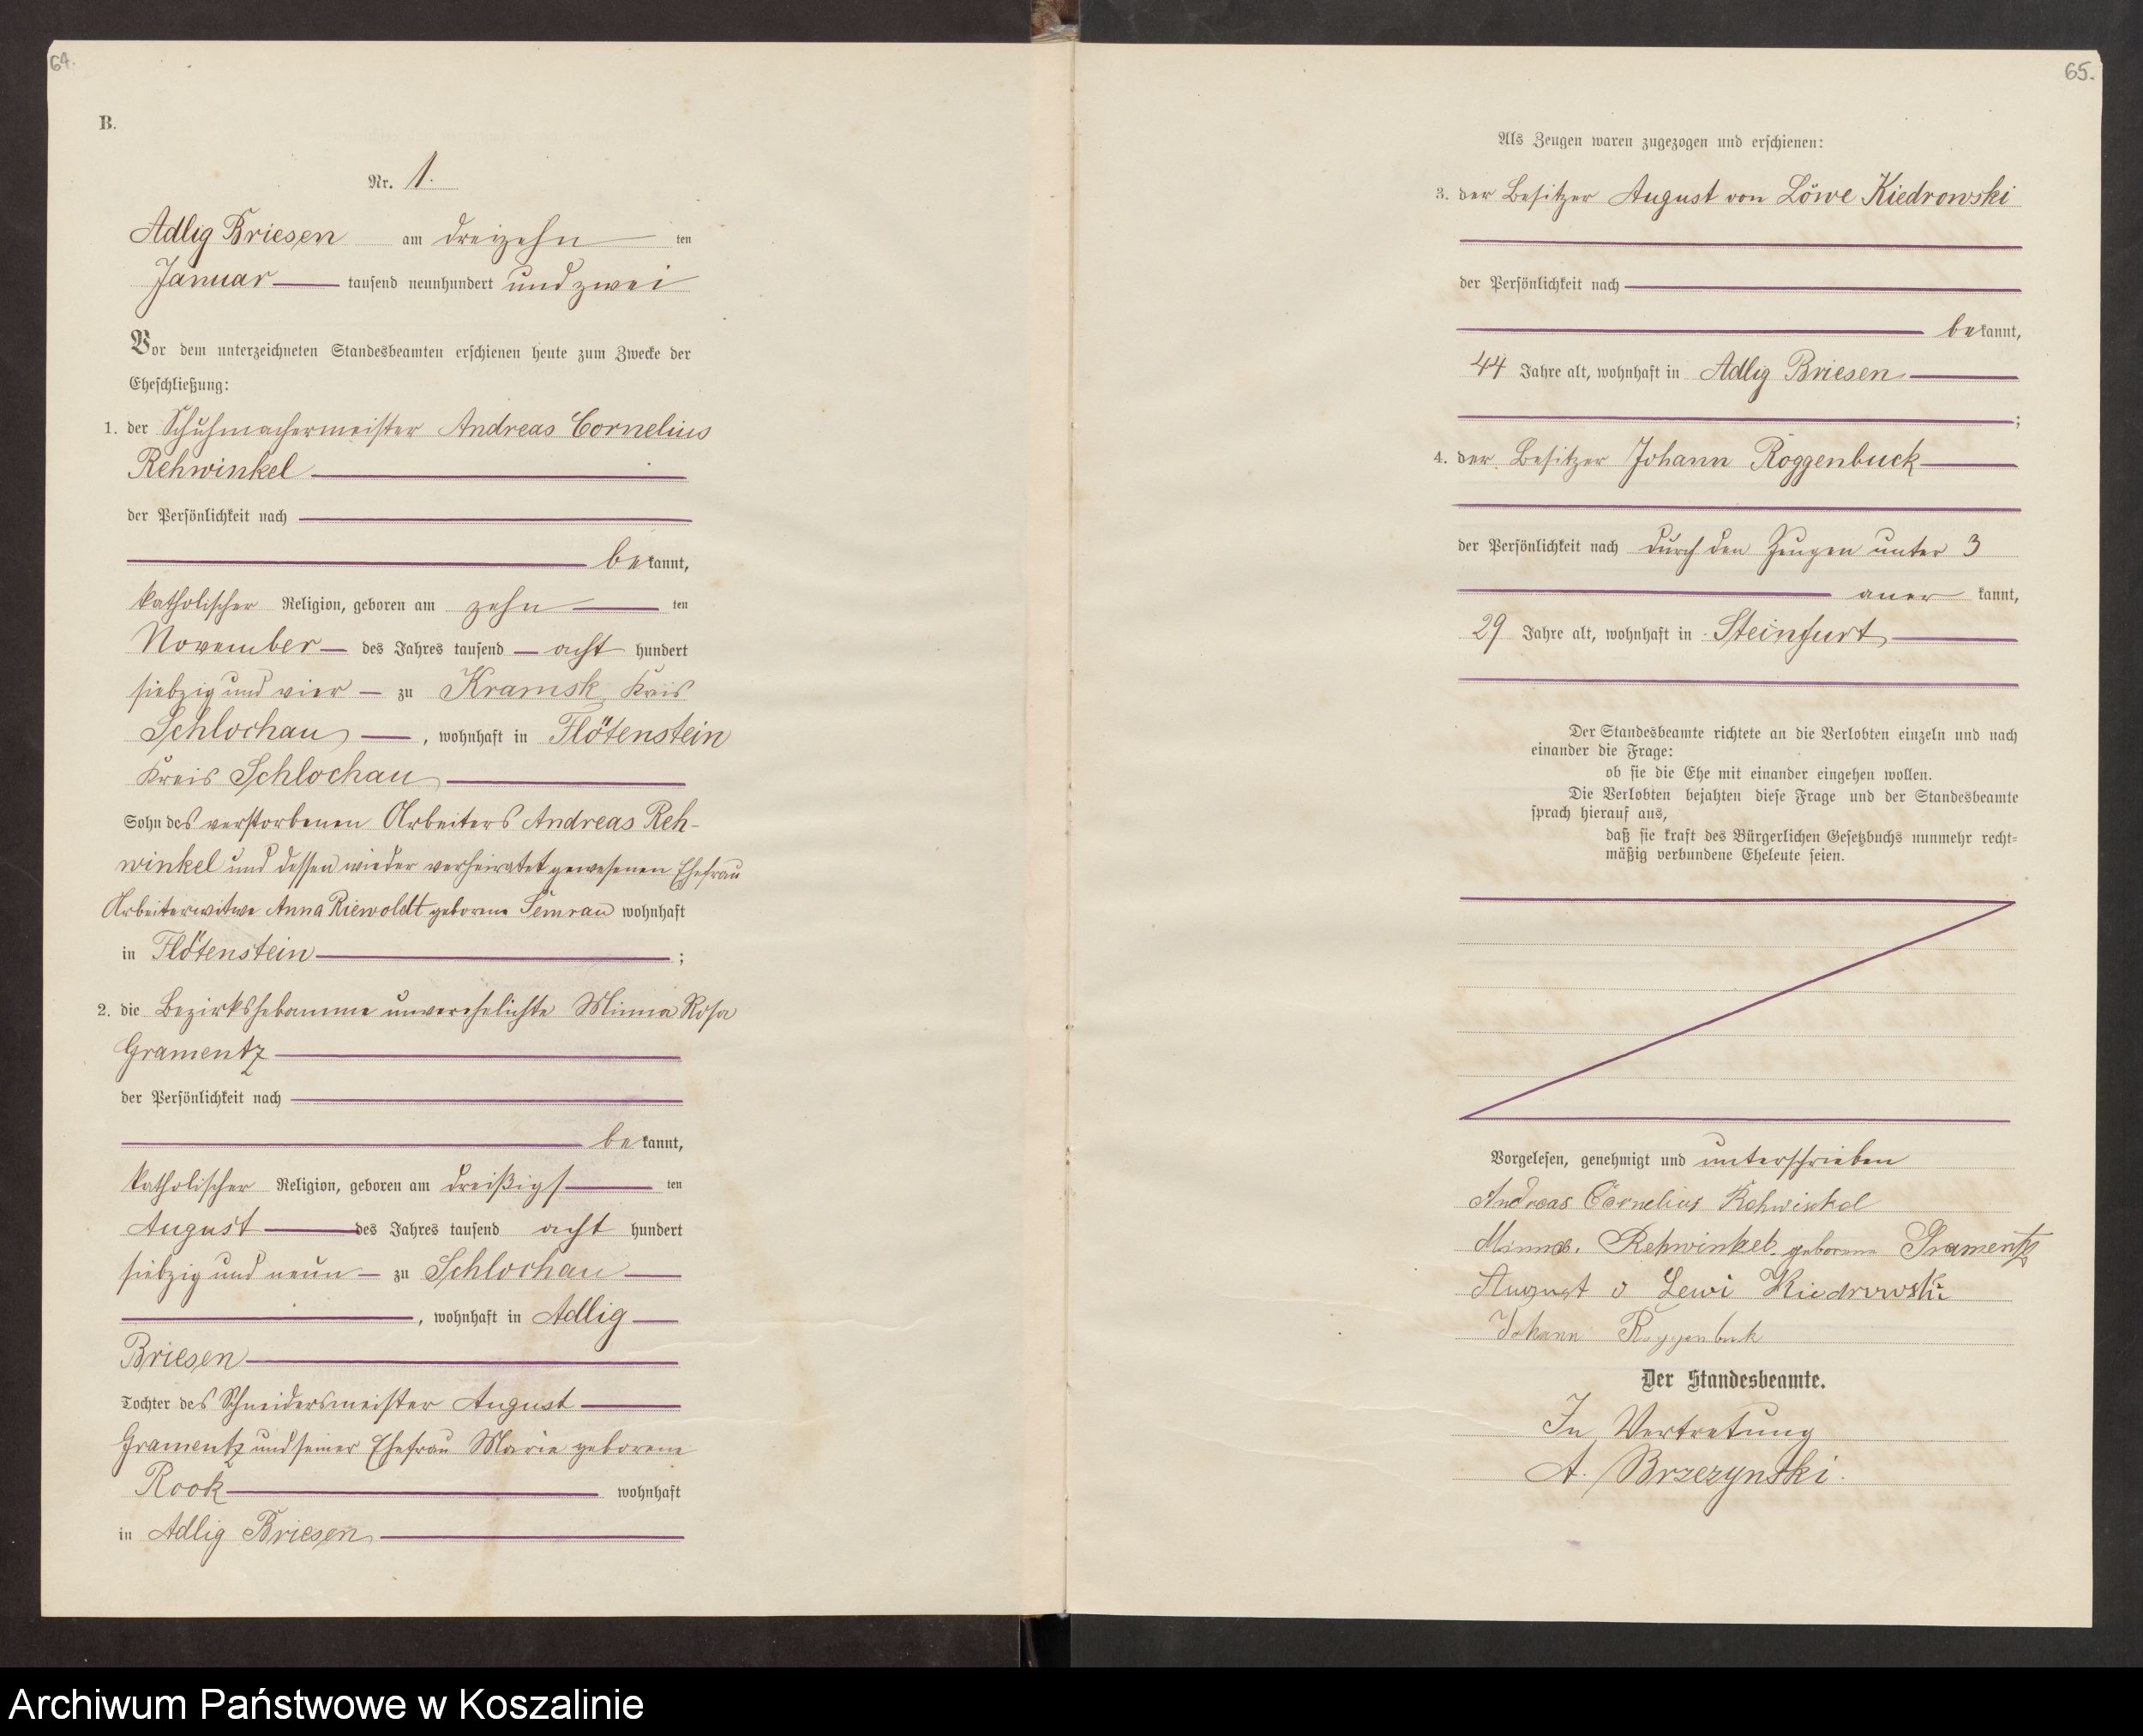 64.
B.
Nr. 1.
Adlig Briesen am dreizehn ten
Januar tausend neunhundert und zwei
Vor dem unterzeichneten Standesbeamten erschienen heute zum Zwecke der
Eheschließung:
1. der Schuhmachermeister Andreas Cornelius
Rehwinkel
der Persönlichkeit nach
bekannt,
katholischer Religion, geboren am zehn ten
November des Jahres tausend acht hundert
siebzig und vier zu Kramsk Kreis
Schlochau, wohnhaft in Flötenstein
Kreis Schlochau
Sohn des verstorbenen Arbeiters Andreas Reh-
winkel und dessen wieder verheiratet gewesenen Ehefrau
Arbeiterwitwe Anna Riewoldt geborene Semrau wohnhaft
in Flötenstein ;
2. die Bezirkshebamme unverehelichte Minna Rosa
Gramentz
der Persönlichkeit nach
bekannt,
katholischer Religion, geboren am dreißigs ten
August des Jahres tausend acht hundert
siebzig und neun zu Schlochau
, wohnhaft in Adlig
Briesen
Tochter des Schneidersmeister August
Gramentz und seiner Ehefrau Marie geborene
Rook wohnhaft
in Adlig Briesen
65.
Als Zeugen waren zugezogen und erschienen:
3. der Besitzer August von Löwe Kiedrowski
der Persönlichkeit nach
bekannt,
44 Jahre alt, wohnhaft in Adlig Briesen
;
4. der Besitzer Johann Roggenbuck
der Persönlichkeit nach durch den Zeugen unter 3
aner kannt,
29 Jahre alt, wohnhaft in Steinfurt
Der Standesbeamte richtete an die Verlobten einzeln und nach
einander die Frage:
ob sie die Ehe mit einander eingehen wollen.
Die Verlobten bejahten diese Frage und der Standesbeamte
sprach hierauf aus,
daß sie kraft des Bürgerlichen Gesetzbuchs nunmehr recht-
mäßig verbundene Eheleute seien.
Vorgelesen, genehmigt und unterschrieben
Andreas Cornelius Rehwinkel
Minna. Rehwinkel geborene Gramentz
August v Lewi Kiedrowski
Johann Roggenbuk
Der Standesbeamte.
In Vertretung
A. Brzezynski.
Archiwum Państwowe w Koszalinie